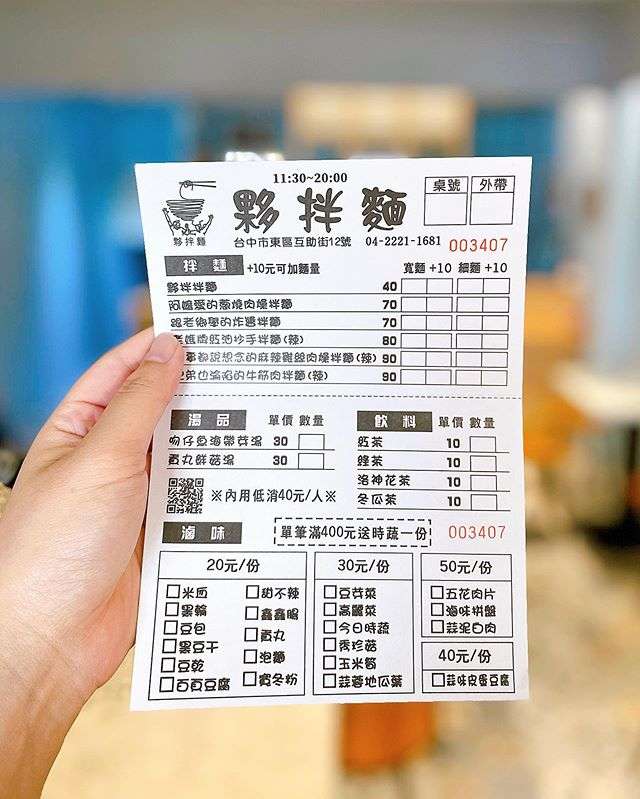 11:30~20:00
夥拌麵
桌號 外帶
夥拌麵
台中市東區互助街12號 04-2221-1681 003407
拌麵 +10元可加麵量 寬麵+10 細麵+10
夥拌拌麵 40
阿嬤愛的蔥燒肉燥拌麵 70
跟老衛學的炸醬拌麵 70
媽牌紅油抄手拌麵(辣) 80
都說想念的麻辣雞絲肉燥拌麵(辣) 90
弟也淪陷的牛筋肉拌麵(辣) 90
湯品 單價 數量
吻仔魚海帶芽湯 30
貢丸鮮菇湯 30
飲料 單價 數量
紅茶 10
綠茶 10
洛神花茶 10
冬瓜茶 10
※內用低消40元/人※
滷味 單筆滿400元送時蔬一份 003407
20元/份
米血
黑輪
豆包
黑豆干
豆乾
百頁豆腐
甜不辣
鑫鑫腸
貢丸
泡麵
寬冬粉
30元/份
豆芽菜
高麗菜
今日時蔬
秀珍菇
玉米筍
蒜蓉地瓜葉
50元/份
五花肉片
海味拼盤
蒜泥白肉
40元/份
蒜味皮蛋豆腐